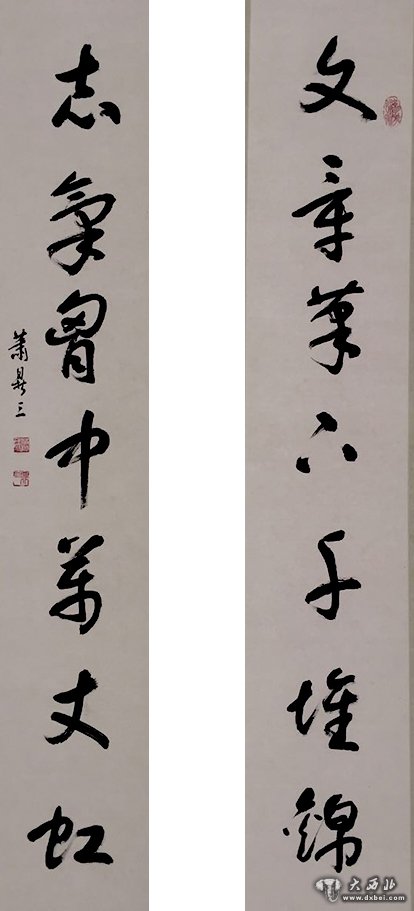 文章筆下千堆錦
志氣胸中萬丈虹
蕭鼎三
大西北
www.dxbei.com